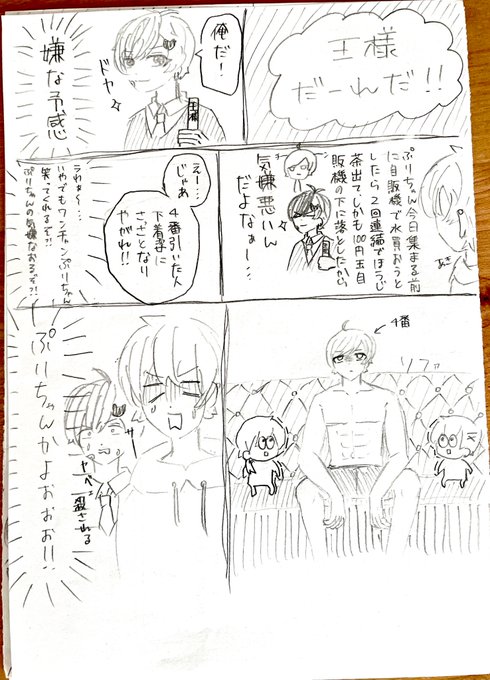 王様
だーれんだ!!
俺だ!
王様
ドヤ
嫌な予感
ぷりちゃん今日集まる前
に自販機で水買おうと
したら2回連続でほうじ
茶出てしかも100円玉自
販機の下に落としたから
気嫌悪いん
だよなぁー…
えー…
じゃあ
4番引いた人
下着姿に
さっさとなり
やがれ!!
うわぁ〜…
いやでもワンチャンぷりちゃん
笑ってくれるぞ?!
ぷりちゃんの気嫌なおるぞ?!
4番
ソファ
ヤベェ
殺される
ぷりちゃんかよぉぉぉ!!